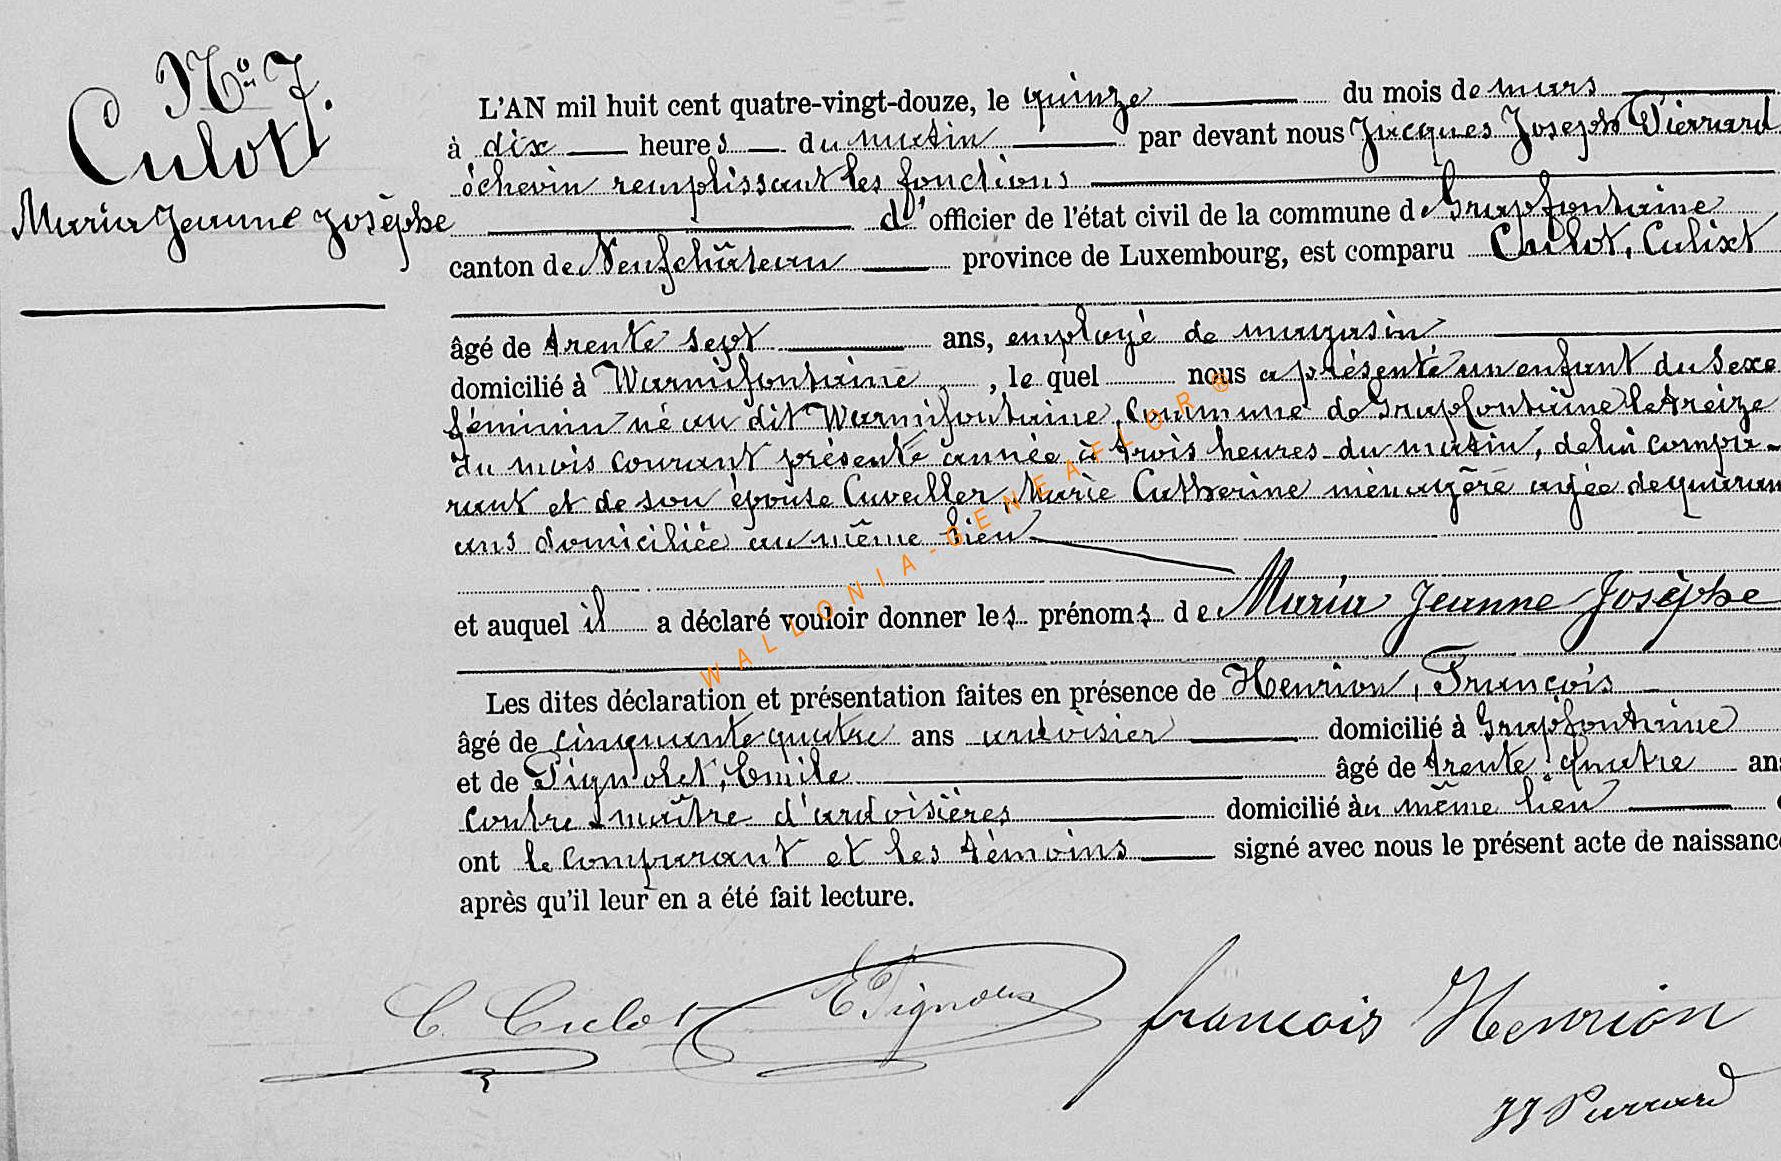 No 7.
Culot
Maria Jeanne Josèphe
L'AN mil huit cent quatre-vingt-douze, le quinze du mois de mars
à dix heures du matin par devant nous Jacques Joseph Pierrard
échevin remplissant les fonctions
d'officier de l'état civil de la commune de Grapfontaine
canton de Neufchâteau province de Luxembourg, est comparu Culot, Calixt
âgé de trente sept ans, employé de magasin
domicilié à Warmifontaine, le quel nous a présenté un enfant du sexe
féminin né au dit Warmifontaine, Commune de Grapfontaine le treize
du mois courant présente année à trois heures du matin, de lui compa-
rant et de son épouse Cuvellier, Marie Catherine ménagère agée de quaran
ans domiciliée au même lieu
et auquel il a déclaré vouloir donner les prénoms de Maria Jeanne Josèphe
Les dites déclaration et présentation faites en présence de Henrion, François
âgé de cinquante quatre ans ardoisier domicilié à Grapfontaine
et de Pignolet, Emile âgé de trente quatre ans
contre maître d'ardoisières domicilié au même lieu
ont le comparant et les témoins signé avec nous le présent acte de naissance
après qu'il leur en a été fait lecture.
C. Culot E Pignolet francois Henrion
JJ Pierrard
WALLONIA-GENEAFLOR®